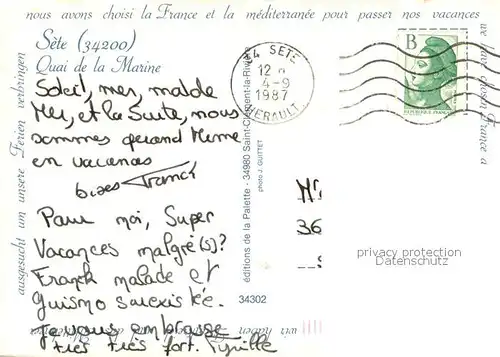 nous avons choisi la France et la méditerranée pour passer nos vacances
Sète (34200)
Quai de la Marine
Soleil, mer, malade
Mer, et la Suite, nous
sommes quand Meme
en vacances
bises Franck
Pour moi, Super
Vacances malgré(s)?
Franck malade et
Guismo surexistée.
Je vous embrasse
très très fort.
34 SETE
12
4-9
1987
HERAULT
B
REPUBLIQUE FRANCAISE
éditions de la Palette - 34980 Saint-Clément-la-Rivière
photo J. QUITTET
34302
M
36
privacy protection
Datenschutz
ausgesucht um unsere Ferien verbringen
wir haben
we have chosen France